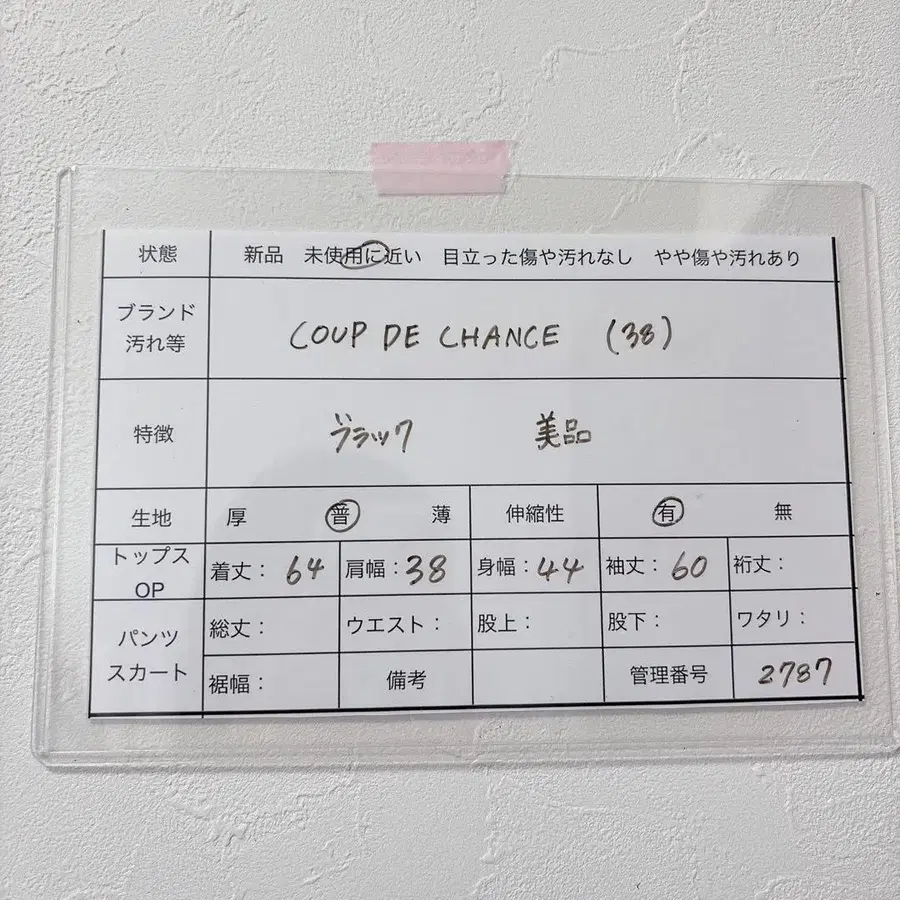 状態 新品 未使用に近い 目立った傷や汚れなし やや傷や汚れあり
ブランド
汚れ等
COUP DE CHANCE (38)
特徴 ブラック 美品
生地 厚 普 薄 伸縮性 有 無
トップス
OP
着丈: 64 肩幅: 38 身幅: 44 袖丈: 60 裄丈:
パンツ
スカート
総丈: ウエスト: 股上: 股下: ワタリ:
裾幅: 備考 管理番号 2787